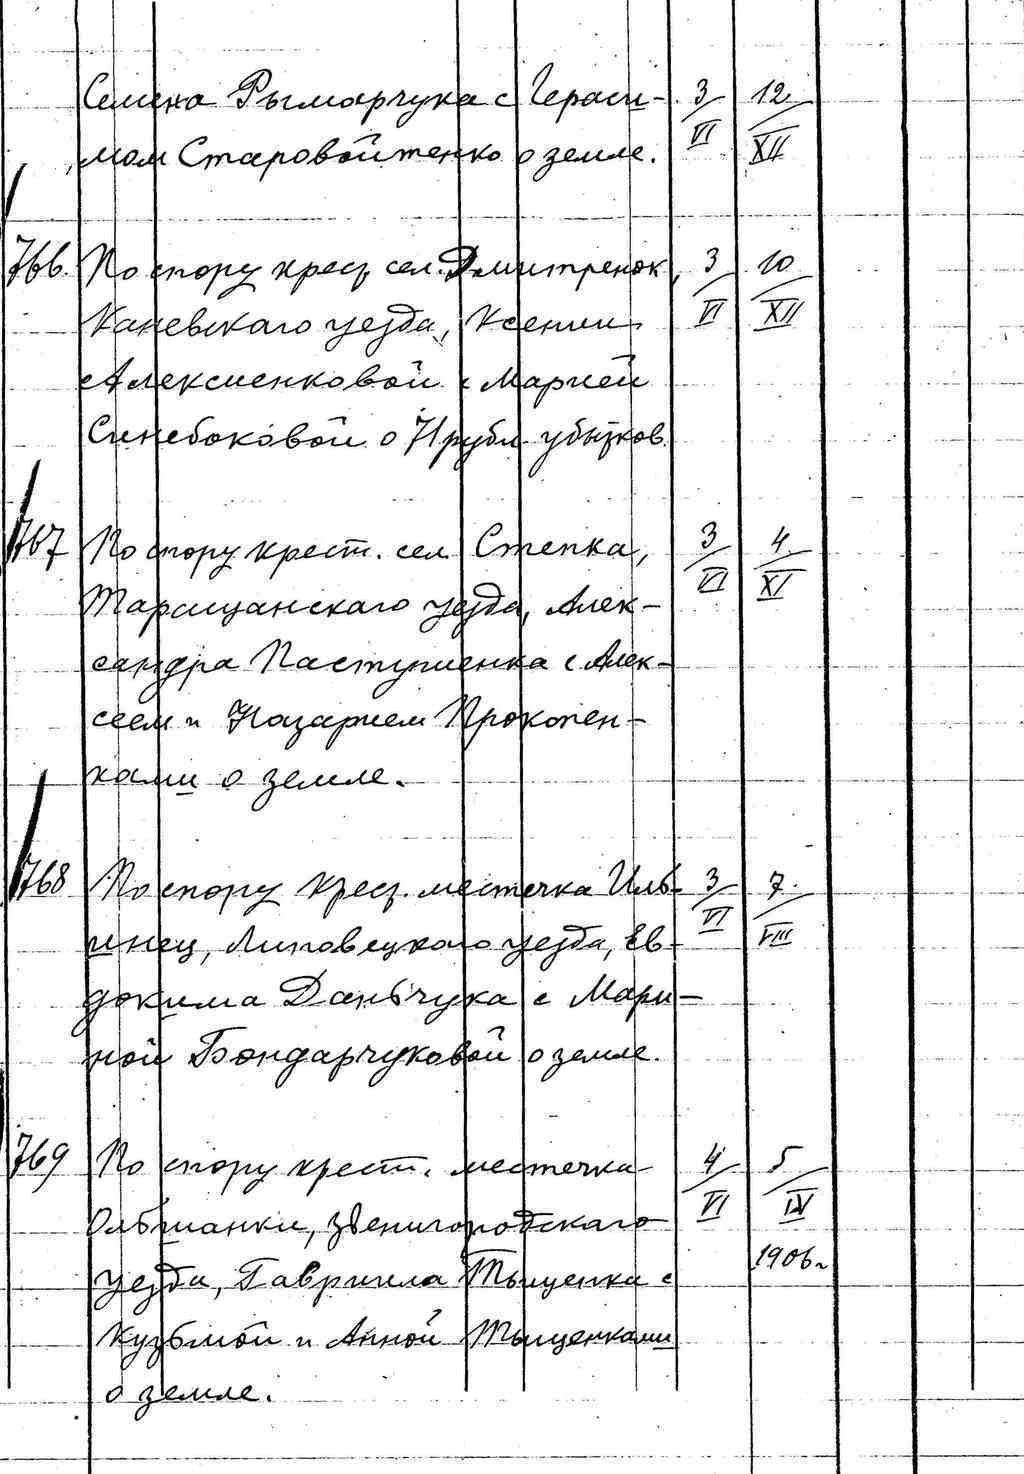 Семена Рымарчука с Гераси- 3/VI 12/XII
мом Старовойтенко о земле.
766. По спору крест. сел. Дмитренок, 3/VI 10/XII
Каневскаго уезда, Ксении
Алексиенковой с Марией
Синебоковой о 71 рубл. убытков.
767 По спору крест. сел. Степка, 3/VI 4/XI
Таращанскаго уезда, Алек-
сандра Пастушенка с Алек-
сеем и Назарием Прокопен-
ками о земле.
768 По спору крест. местечка Иль- 3/VI 7/VIII
инец, Липовецкого уезда, Ев-
докима Даньчука с Мари-
ной Бондарчуковой о земле.
769 По спору крест. местечка 4/VI 5/IV
Ольшанки, Звенигородскаго 1906 г.
уезда, Гавриила Тыщенка с
Кузьмой и Анной Тыщенками
о земле.